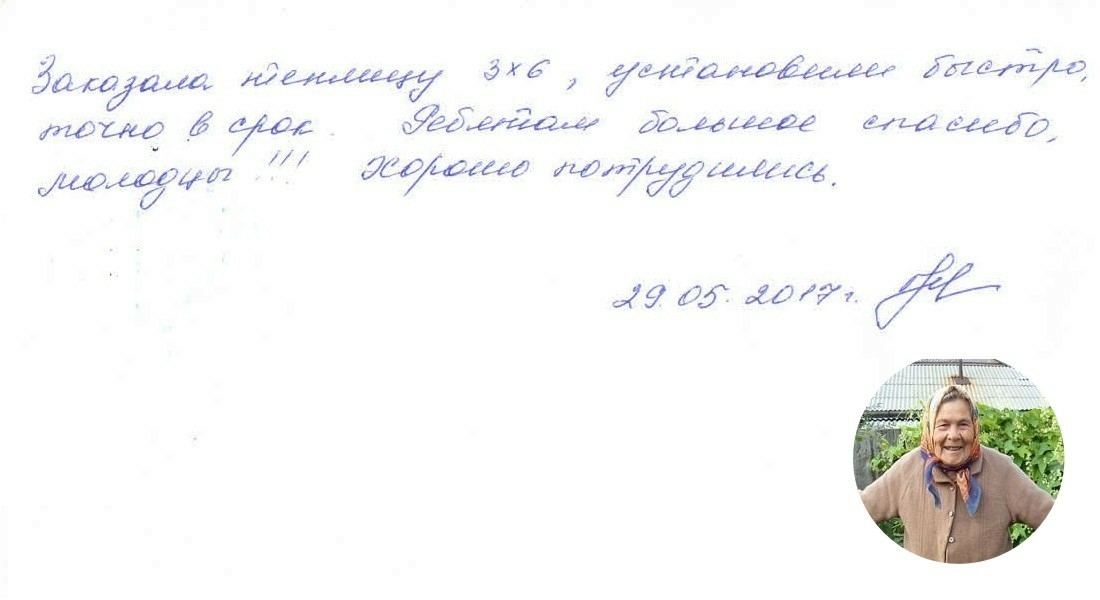 Заказала теплицу 3×6, установили быстро,
точно в срок. Ребятам большое спасибо,
молодцы!!! Хорошо потрудились.
29.05.2017г.